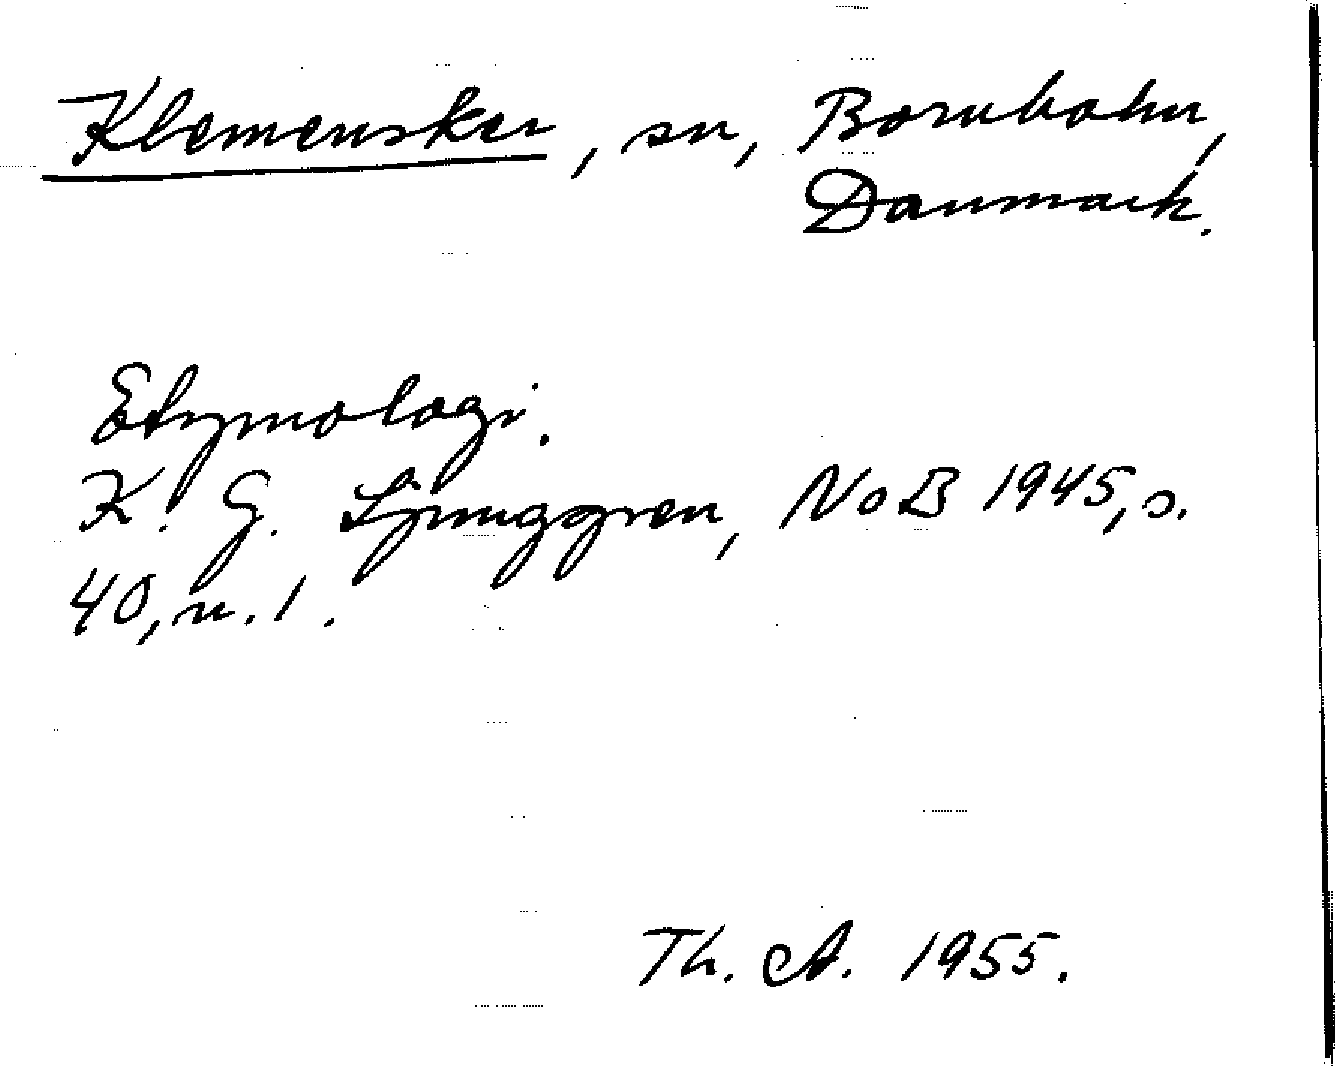 Klemensker, sn, Bornholm,
Danmark.
Etymologi.
K. G. Ljunggren, NoB 1945, s.
40, n. 1.
Th. A. 1955.